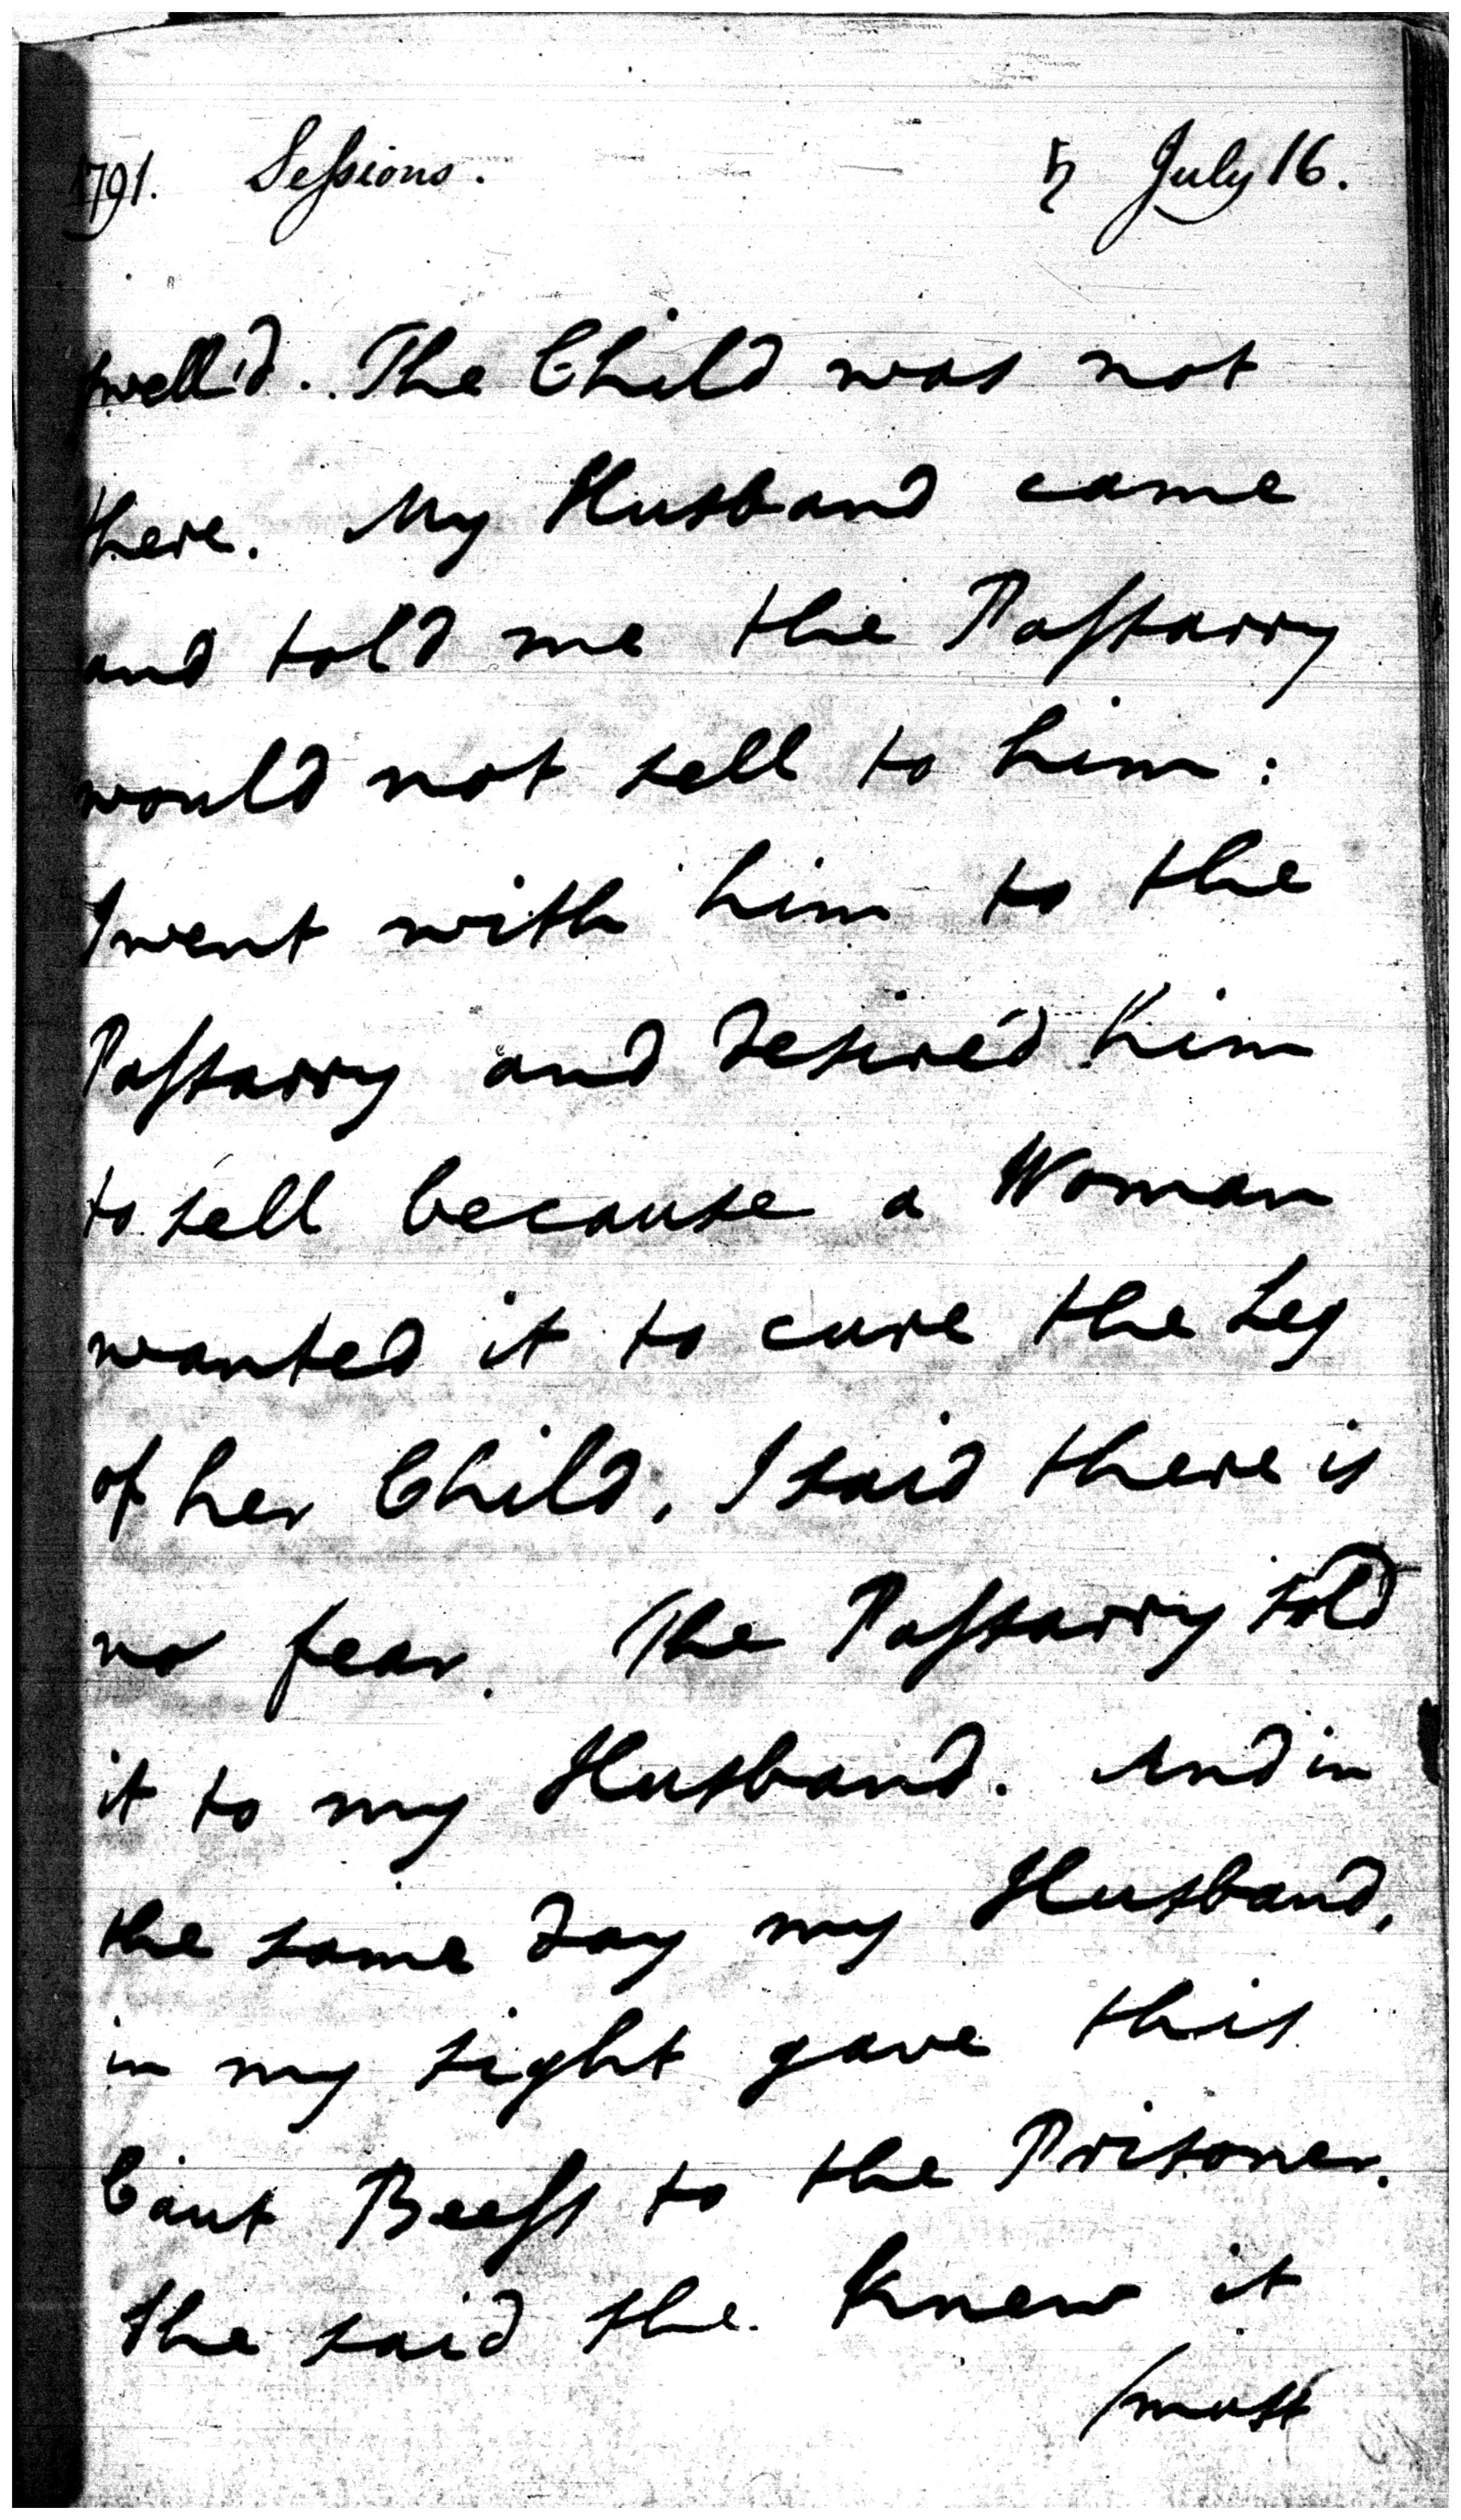 1791. Sessions. ♄ July 16.
swell'd. The Child was not
there. My Husband came
and told me the Passarry
would not sell to him:
I went with him to the
Passarry and desired him
to sell because a Woman
wanted it to cure the Leg
of her Child, I said there is
no fear. The Passarry sold
it to my Husband. And in
the same day my Husband,
in my sight gave this
Caut Beess to the Prisoner.
She said she knew it
must